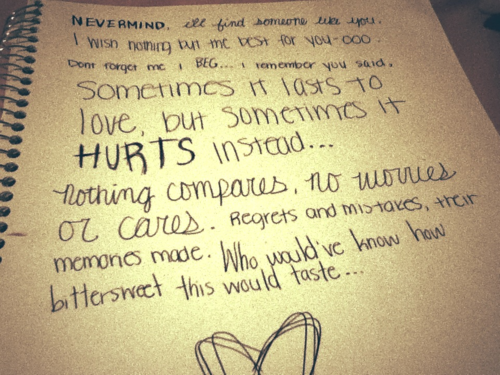 NEVERMIND, ill find someone like you.
I wish nothing but the best for you-ooo.
Dont forget me I BEG... I remember you said,
Sometimes it lasts to
love, but sometimes it
HURTS instead...
nothing compares, no worries
or cares. Regrets and mistakes, their
memories made. Who would've know how
bittersweet this would taste...